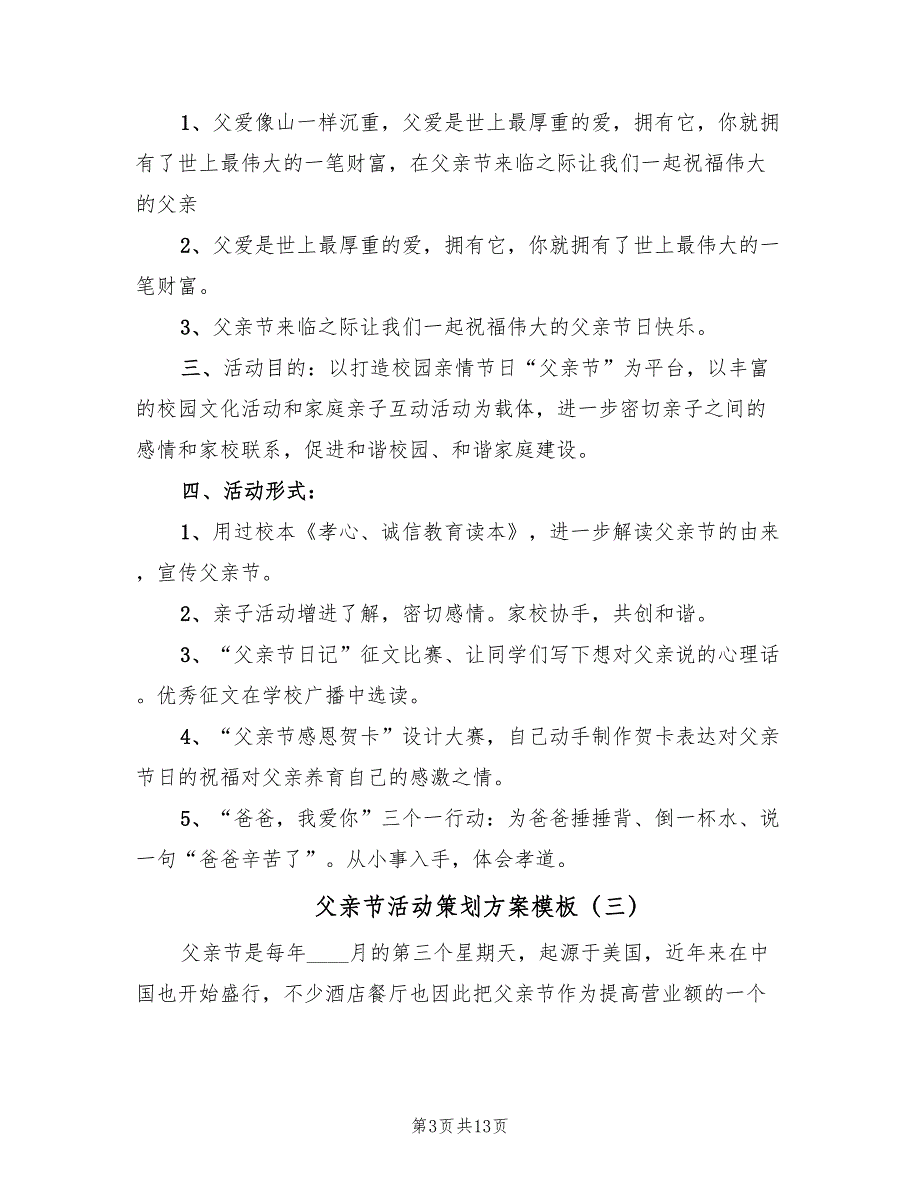 1、父爱像山一样沉重，父爱是世上最厚重的爱，拥有它，你就拥
有了世上最伟大的一笔财富，在父亲节来临之际让我们一起祝福伟大
的父亲
2、父爱是世上最厚重的爱，拥有它，你就拥有了世上最伟大的一
笔财富。
3、父亲节来临之际让我们一起祝福伟大的父亲节日快乐。
三、活动目的：以打造校园亲情节日“父亲节”为平台，以丰富
的校园文化活动和家庭亲子互动活动为载体，进一步密切亲子之间的
感情和家校联系，促进和谐校园、和谐家庭建设。
四、活动形式：
1、用过校本《孝心、诚信教育读本》，进一步解读父亲节的由来
，宣传父亲节。
2、亲子活动增进了解，密切感情。家校协手，共创和谐。
3、“父亲节日记”征文比赛、让同学们写下想对父亲说的心理话
。优秀征文在学校广播中选读。
4、“父亲节感恩贺卡”设计大赛，自己动手制作贺卡表达对父亲
节日的祝福对父亲养育自己的感激之情。
5、“爸爸，我爱你”三个一行动：为爸爸捶捶背、倒一杯水、说
一句“爸爸辛苦了”。从小事入手，体会孝道。
父亲节活动策划方案模板（三）
父亲节是每年____月的第三个星期天，起源于美国，近年来在中
国也开始盛行，不少酒店餐厅也因此把父亲节作为提高营业额的一个
第3页共13页